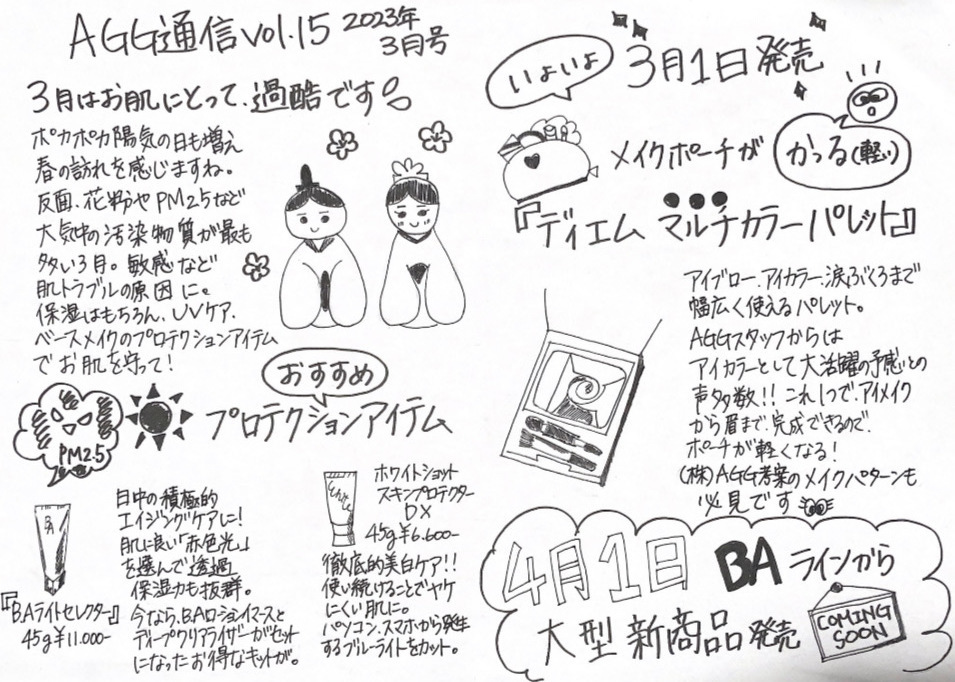 AGG通信vol.15 2023年
3月号
3月はお肌にとって、過酷です
ポカポカ陽気の日も増え
春の訪れを感じますね。
反面、花粉やPM2.5など
大気中の汚染物質が最も
多い3月。敏感など
肌トラブルの原因に。
保湿はもちろん、UVケア、
ベースメイクのプロテクションアイテム
でお肌を守って!
おすすめ
プロテクションアイテム
PM2.5
BA
『BAライトセレクター』
45g¥11.000-
日中の積極的
エイジングケアに!
肌に良い「赤色光」
を選んで透過
保湿力も抜群。
今なら、BAローションマースと
ディープクリアライザーがセット
になったお得なキットが。
ホワイトショット
スキンプロテクター
DX
45g¥6.600-
徹底的美白ケア!!
使い続けることでヤケ
にくい肌に。
パソコン、スマホから発生
するブルーライトをカット。
いよいよ
3月1日発売
メイクポーチが
かっる(軽ッ)
『ディエム マルチカラーパレット』
アイブロー、アイカラー、涙ぶくろまで
幅広く使えるパレット。
AGGスタッフからは
アイカラーとして大活躍の予感との
声多数!!これ1つで、アイメイク
から眉まで、完成できるので、
ポーチが軽くなる!
(株)AGG考案のメイクパターンも
必見です
4月1日 BAラインから
大型新商品発売
COMING
SOON